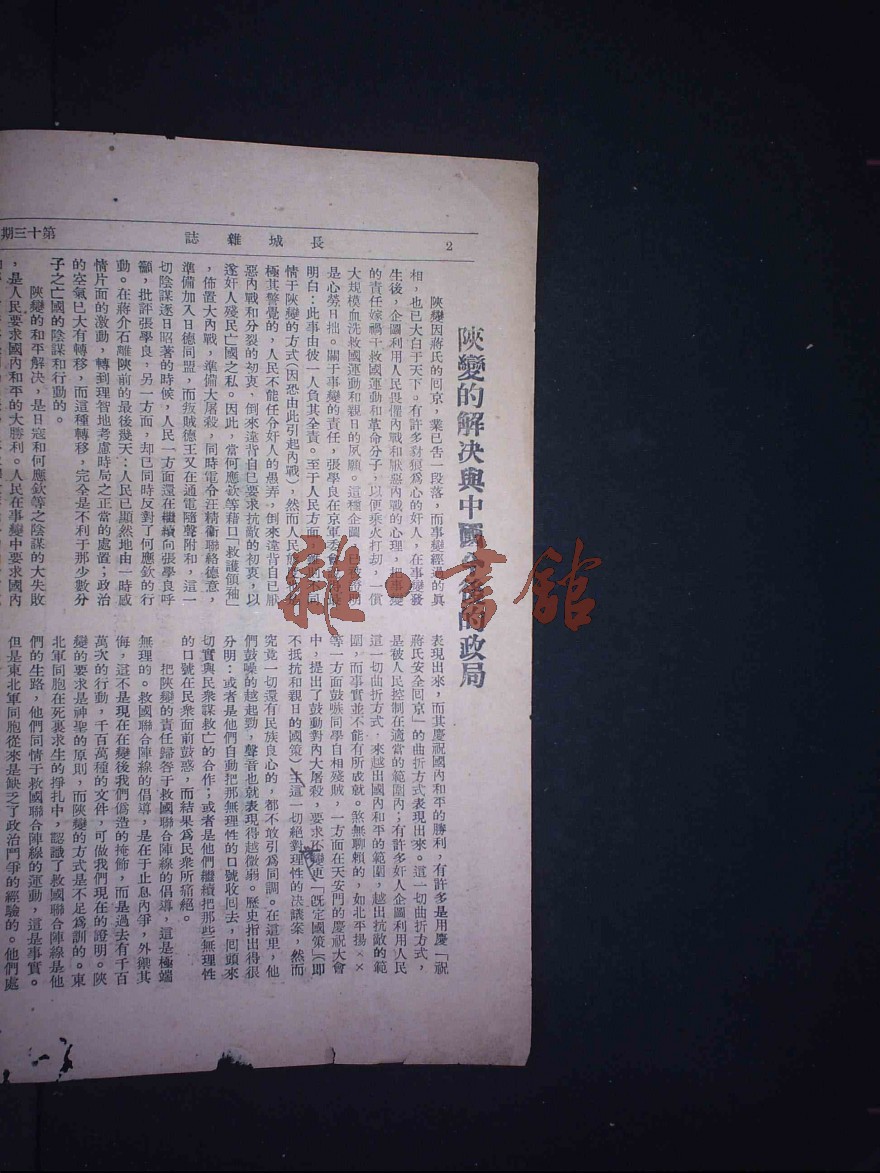 2
長城雜誌
第十三期
陝變的解決與中國今後的政局
陝變因蔣氏的囘京，業已告一段落，而事變經過的眞
相，也已大白于天下。有許多對狠爲心的奸人，在事變發
生後，企圖利用人民畏懼內戰和厭惡內戰的心理，把事變
的責任嫁禍于救國運動和革命分子，以便乘火打劫，一償
大規模血洗救國運動和親日的夙願。這種企圖，已被證明
是心勞日拙。關于事變的責任，張學良在京軍委會
明白：此事由彼一人負其全責。至于人民方面，雖則不同
情于陝變的方式（因恐由此引起內戰），然而人民
極其警覺的，人民不能任令奸人的愚弄，倒來違背自已厭
惡內戰和分裂的初衷，倒來違背自已要求抗敵的初衷，以
遂奸人殘民亡國之私。因此，當何應欽等藉口「救護領袖」
，佈置大內戰，準備大屠殺，同時電令汪精衞聯絡德意，
準備加入日德同盟，而叛賊德王又在通電隨聲附和，這一
切陰謀逐日昭著的時候，人民一方面還在繼續向張學良呼
籲，批評張學良，另一方面，却已同時反對了何應欽的行
動。在蔣介石離陝前的最後幾天：人民已顯然地由一時感
情片面的激動，轉到理智地考慮時局之正當的處置；政治
的空氣已大有轉移，而這種轉移，完全是不利于那少數分
子之亡國的陰謀和行動的。
陝變的和平解決，是日寇和何應欽等之陰謀的大失敗
，是人民要求國內和平的大勝利。人民在事變中要求國內
表現出來，而其慶祝國內和平的勝利，有許多是用慶「祝
蔣氏安全囘京」的曲折方式表現出來。這一切曲折方式，
是被人民控制在適當的範圍內；有許多奸人企圖利用人民
這一切曲折方式，來越出國內和平的範圍，越出抗敵的範
圍，而事實並不能有所成就。煞無聊賴的，如北平揚××
等一方面鼓嗾同學自相殘賊，一方面在天安門的慶祝大會
中，提出了鼓動對內大屠殺，要求不變更「旣定國策」（卽
不抵抗和親日的國策）這一切絕對理性的決議案，然而
究竟一切還有民族良心的，都不敢引爲同調。在這里，他
們鼓噪的越起勁，聲音也就表現得越微弱。歷史指出得很
分明：或者是他們自動把那無理性的口號收囘去，囘頭來
切實與民衆謀救亡的合作；或者是他們繼續把那些無理性
的口號在民衆面前鼓惑，而結果爲民衆所痛絕。
把陝變的責任歸咎于救國聯合陣線的倡導，這是極端
無理的。救國聯合陣線的倡導，是在于止息內爭，外禦其
侮，這不是現在在變後我們僞造的掩飾，而是過去有千百
萬次的行動，千百萬種的文件，可做我們現在的證明。陝
變的要求是神聖的原則，而陝變的方式是不足爲訓的。東
北軍同胞在死裏求生的掙扎中，認識了救國聯合陣線是他
們的生路，他們同情于救國聯合陣線的運動，這是事實。
但是東北軍同胞從來是缺乏了政治鬥爭的經驗的。他們處
雜·書館